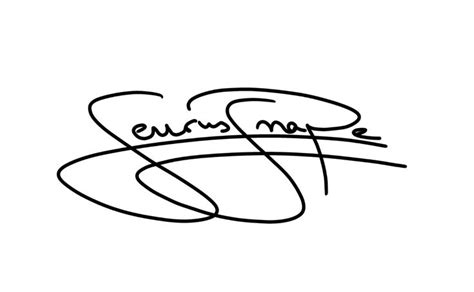 Severus Snape